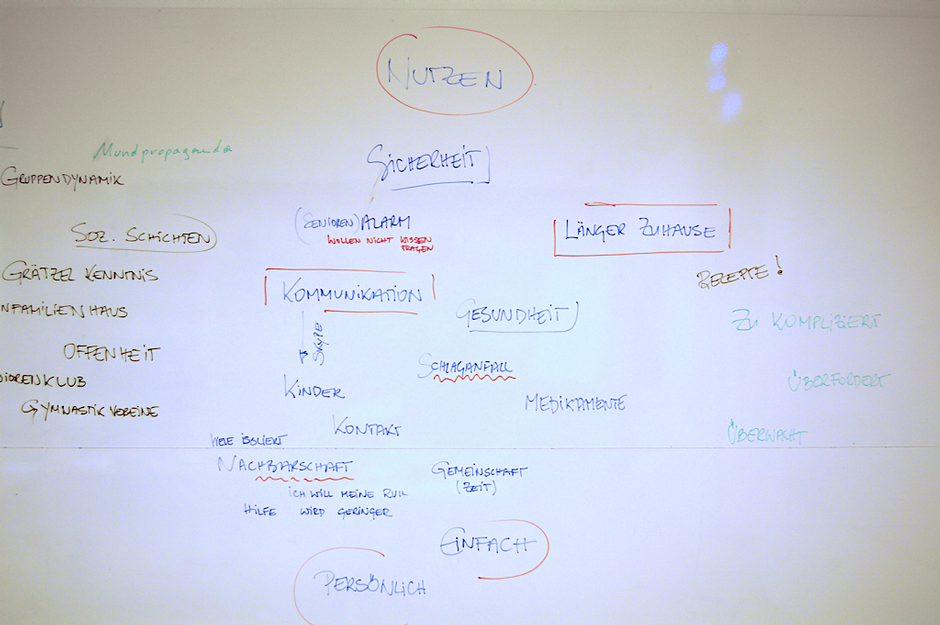 NUTZEN
Mundpropaganda
SICHERHEIT
GRUPPENDYNAMIK
(SENIOREN) ALARM
WOLLEN NICHT WISSEN
TRAGEN
LÄNGER ZUHAUSE
SOZ. SCHICHTEN
GRÄTZEL KENNTNIS
REZEPTE!
KOMMUNIKATION
NFAMILIENHAUS
GESUNDHEIT
ZU KOMPLIZIERT
Skype
OFFENHEIT
SCHLAGANFALL
IORENKLUB
KINDER
ÜBERFORDERT
GYMNASTIK VEREINE
MEDIKAMENTE
KONTAKT
ÜBERWACHT
VIELE ISOLIERT
NACHBARSCHAFT
GEMEINSCHAFT
(ZEIT)
ICH WILL MEINE RUH
HILFE WIRD GERINGER
EINFACH
PERSÖNLICH